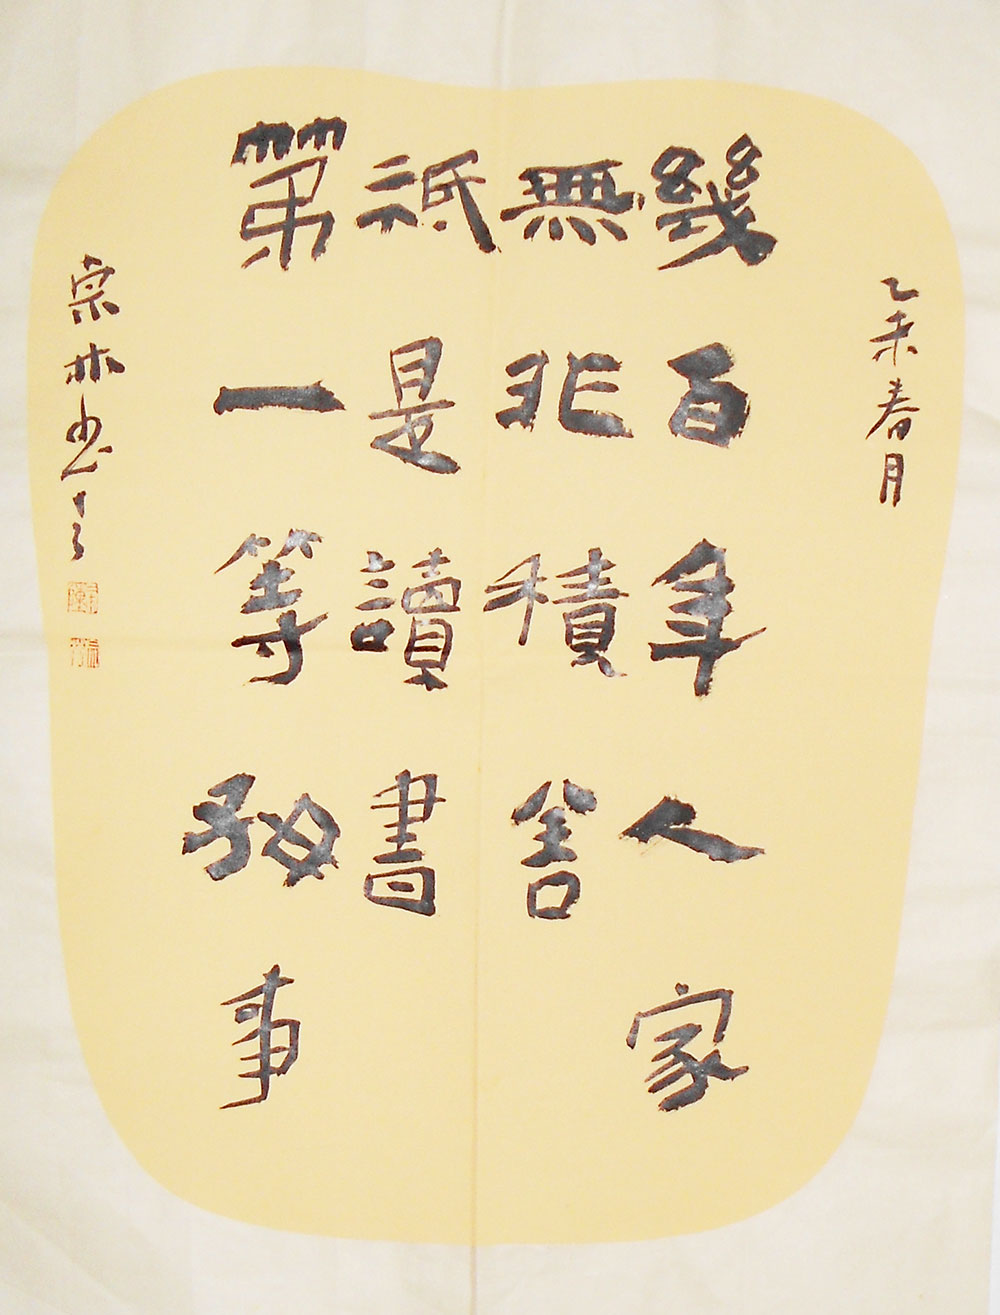 乙未春月
幾百年人家
無非積善
祇是讀書
第一等好事
宗林书